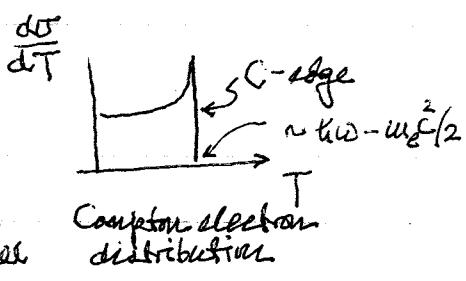 dσ
dT
C-edge
~ ħω - mₑc²/2
T
Compton electron
distribution